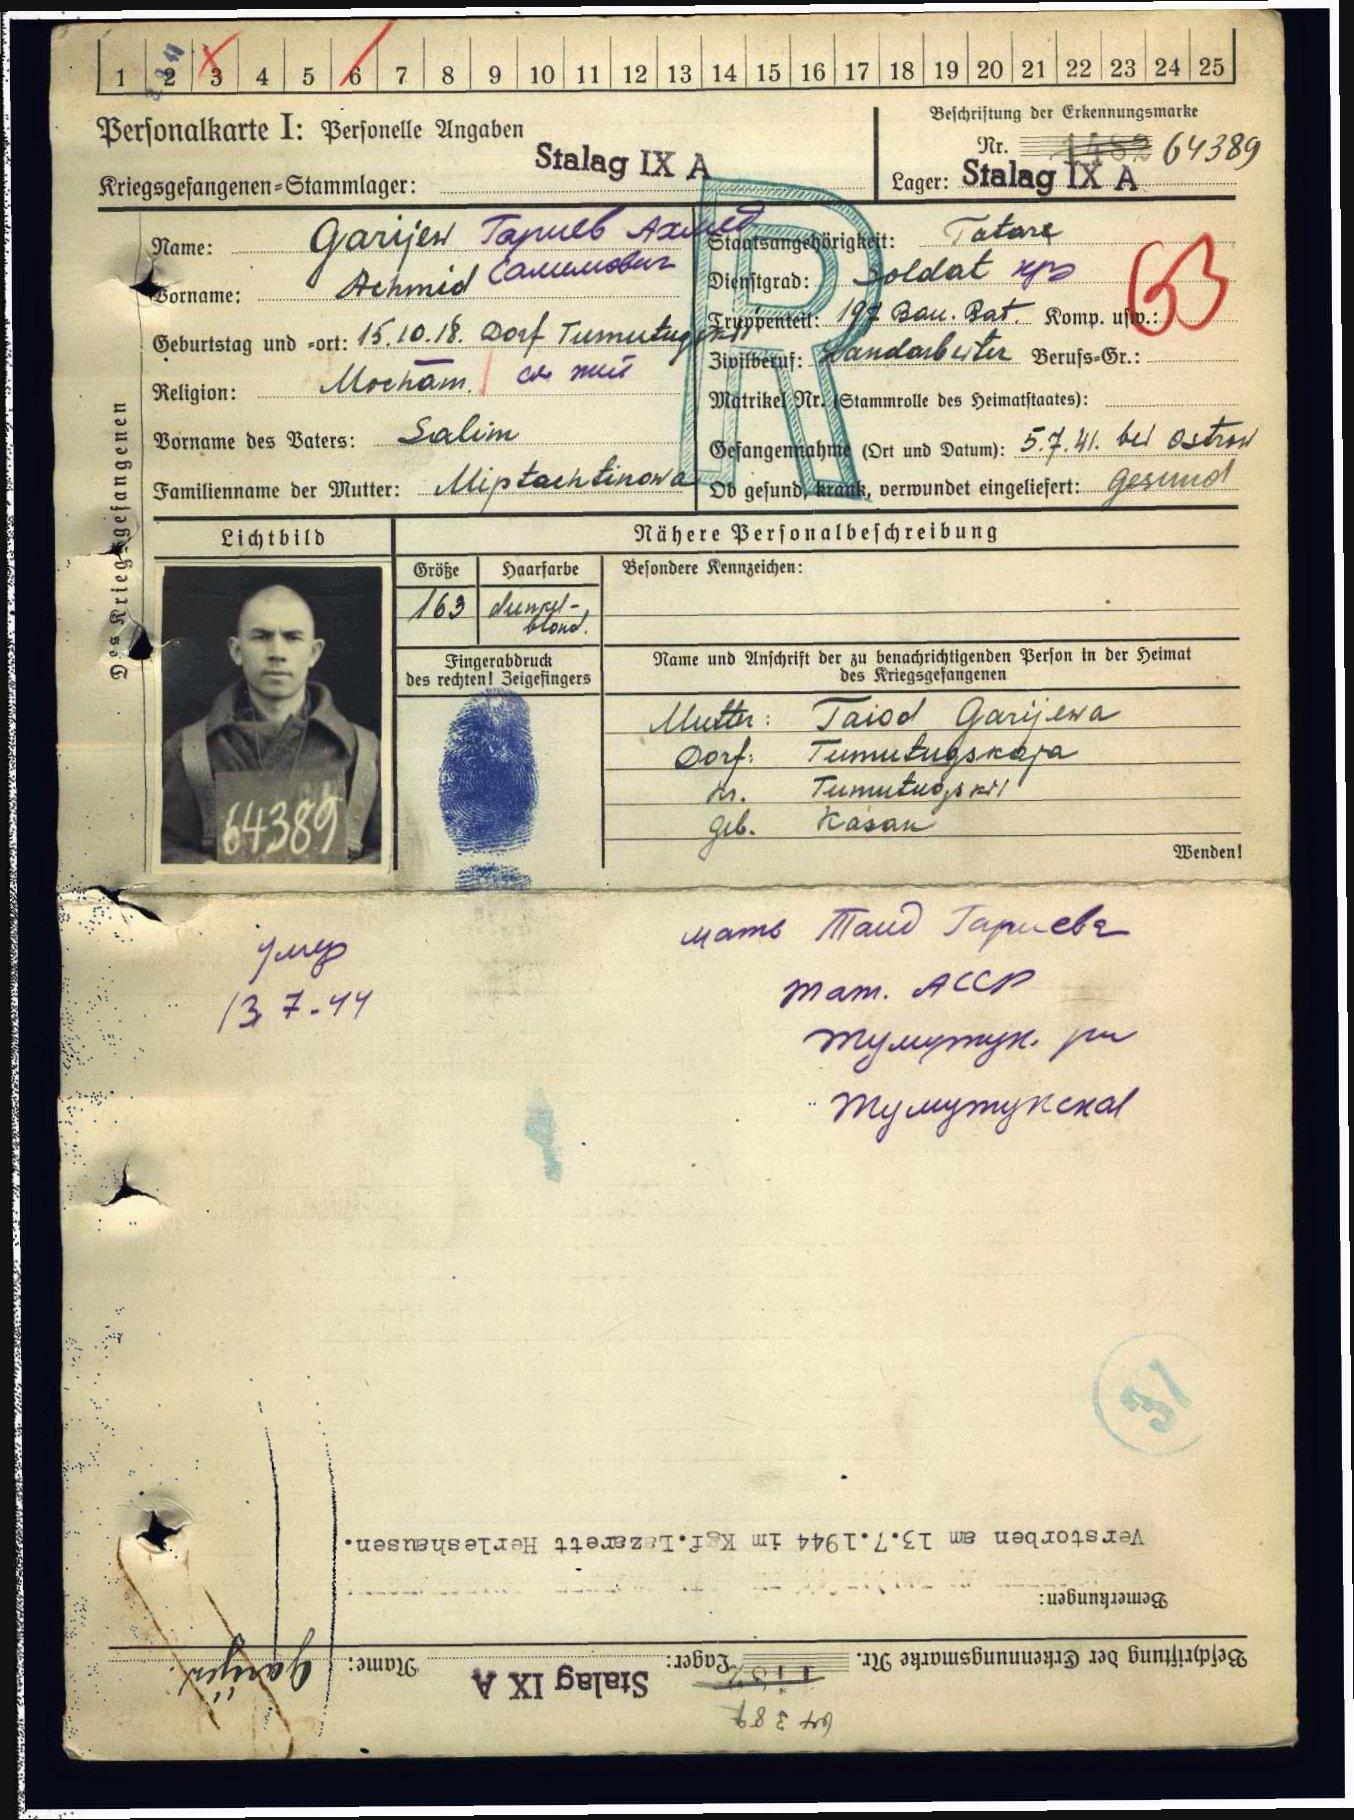 1 2 3 4 5 6 7 8 9 10 11 12 13 14 15 16 17 18 19 20 21 22 23 24 25
Personalkarte I: Personelle Angaben
Beschriftung der Erkennungsmarke
Nr. 64389
Kriegsgefangenen=Stammlager: Stalag IX A
Lager: Stalag IX A
Des Kriegsgefangenen
Name: Garijew Гариев Ахмед
Vorname: Achmid Салимович
Geburtstag und =ort: 15.10.18. Dorf Tumutugskii
Religion: Mocham.
Vorname des Vaters: Salim
Familienname der Mutter: Miptachtinowa
Staatsangehörigkeit: Tatare
Dienstgrad: Soldat кр
Truppenteil: 197 Bau. Bat. Komp. usw.:
Zivilberuf: Landarbeiter Berufs=Gr.:
Matrikel Nr. (Stammrolle des Heimatstaates):
Gefangennahme (Ort und Datum): 5.7.41. bei Ostrow
Ob gesund, krank, verwundet eingeliefert: gesund
R
Lichtbild
Nähere Personalbeschreibung
Größe Haarfarbe Besondere Kennzeichen:
163 dunkel-
blond.
Fingerabdruck
des rechten! Zeigefingers
Name und Anschrift der zu benachrichtigenden Person in der Heimat
des Kriegsgefangenen
64389
Mutter: Taiod Garijewa
Dorf: Tumutugskaja
Kr. Tumutugskii
Geb. Kasan
Wenden!
умер
13.7-44
мать Таид Гариева
Тат. АССР
Тумутук. рн
Тумутукская
31
Verstorben am 13.7.1944 im Kgf.Lazarett Herleshausen.
Bemerkungen:
Beschriftung der Erkennungsmarke Nr. Lager: Stalag IX A Name: Garijew
64389